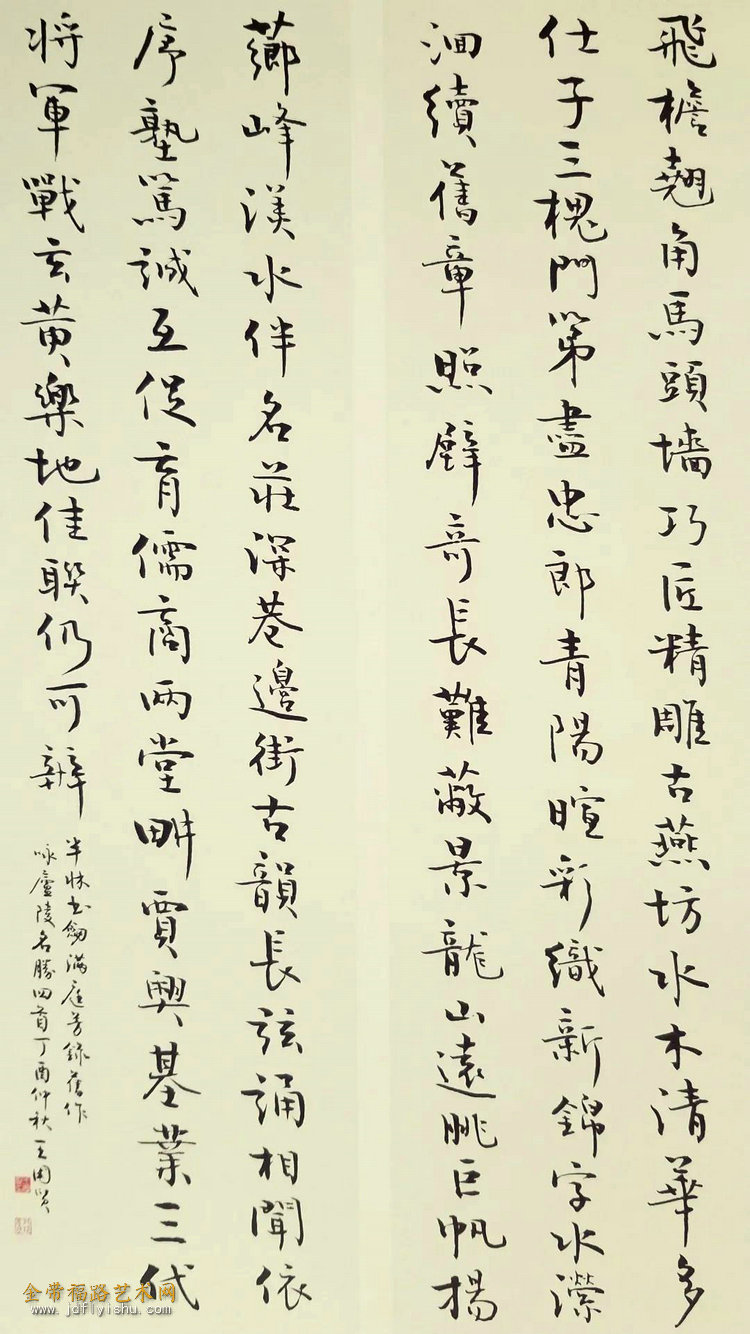 飛檐翹角馬頭墻巧匠精雕古燕坊水木清華多
仕子三槐門第盡忠郎青陽暄彩織新錦字水瀠
洄續舊章照壁奇長難蔽景龍山遠眺巨帆揚
薌峰渼水伴名莊深巷邊街古韻長弦誦相聞依
序塾篤誠互促育儒商兩堂畊賈興基業三代
將軍戰玄黃樂地佳聯仍可辨
半牀書劒滿庭芳錄舊作
咏廬陵名勝四首丁酉仲秋王国贤
金带福路艺术网
www.jdflyishu.com